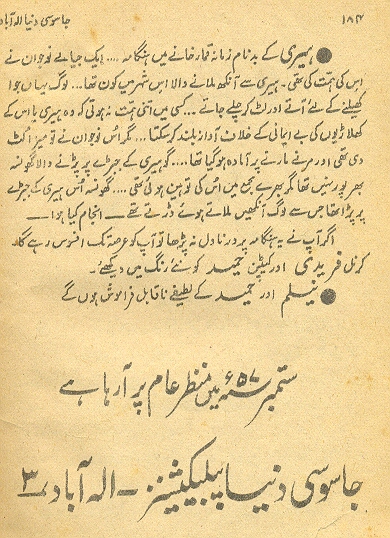 ۱۸۴ جاسوسی دنیا الہ آباد
● ہیری کے بدنام زمانہ قمار خانے میں ہنگامہ .... ایک جیالے نوجوان نے
اس کی ہمت کی تھی۔ ہیری سے آنکھ ملانے والا اس شہر میں کون تھا... لوگ یہاں جوا
کھیلنے کے لئے آتے اور لٹ کر چلے جاتے ... کسی میں اتنی ہمت نہ ہوتی کہ وہ ہیری یا اس کے
کھلاڑیوں کی بے ایمانی کے خلاف آواز بلند کر سکتا... مگر اس نوجوان نے تو میز الٹ
دی تھی اور مرنے مارنے پر آمادہ ہو گیا تھا .... گو ہیری کے جبڑے پر پڑنے والا گھونسہ
بھرپور نہیں تھا مگر بھرے مجمع میں اس کی توہین ہوئی تھی .... گھونسہ اس ہیری کے جبڑے
پر پڑا تھا جس سے لوگ آنکھیں ملاتے ہوئے ڈرتے تھے — انجام کیا ہوا —
اگر آپ نے یہ ہنگامہ پرور ناول نہ پڑھا تو آپ کو عرصہ تک افسوس رہے گا۔
کرنل فریدی اور کیپٹن حمید کو نئے رنگ میں دیکھئے۔
● نیلم اور حمید کے لطیفے ناقابل فراموش ہوں گے
ستمبر ۵۷ء میں منظر عام پر آ رہا ہے
جاسوسی دنیا پبلیکیشنز - الہ آباد ۳